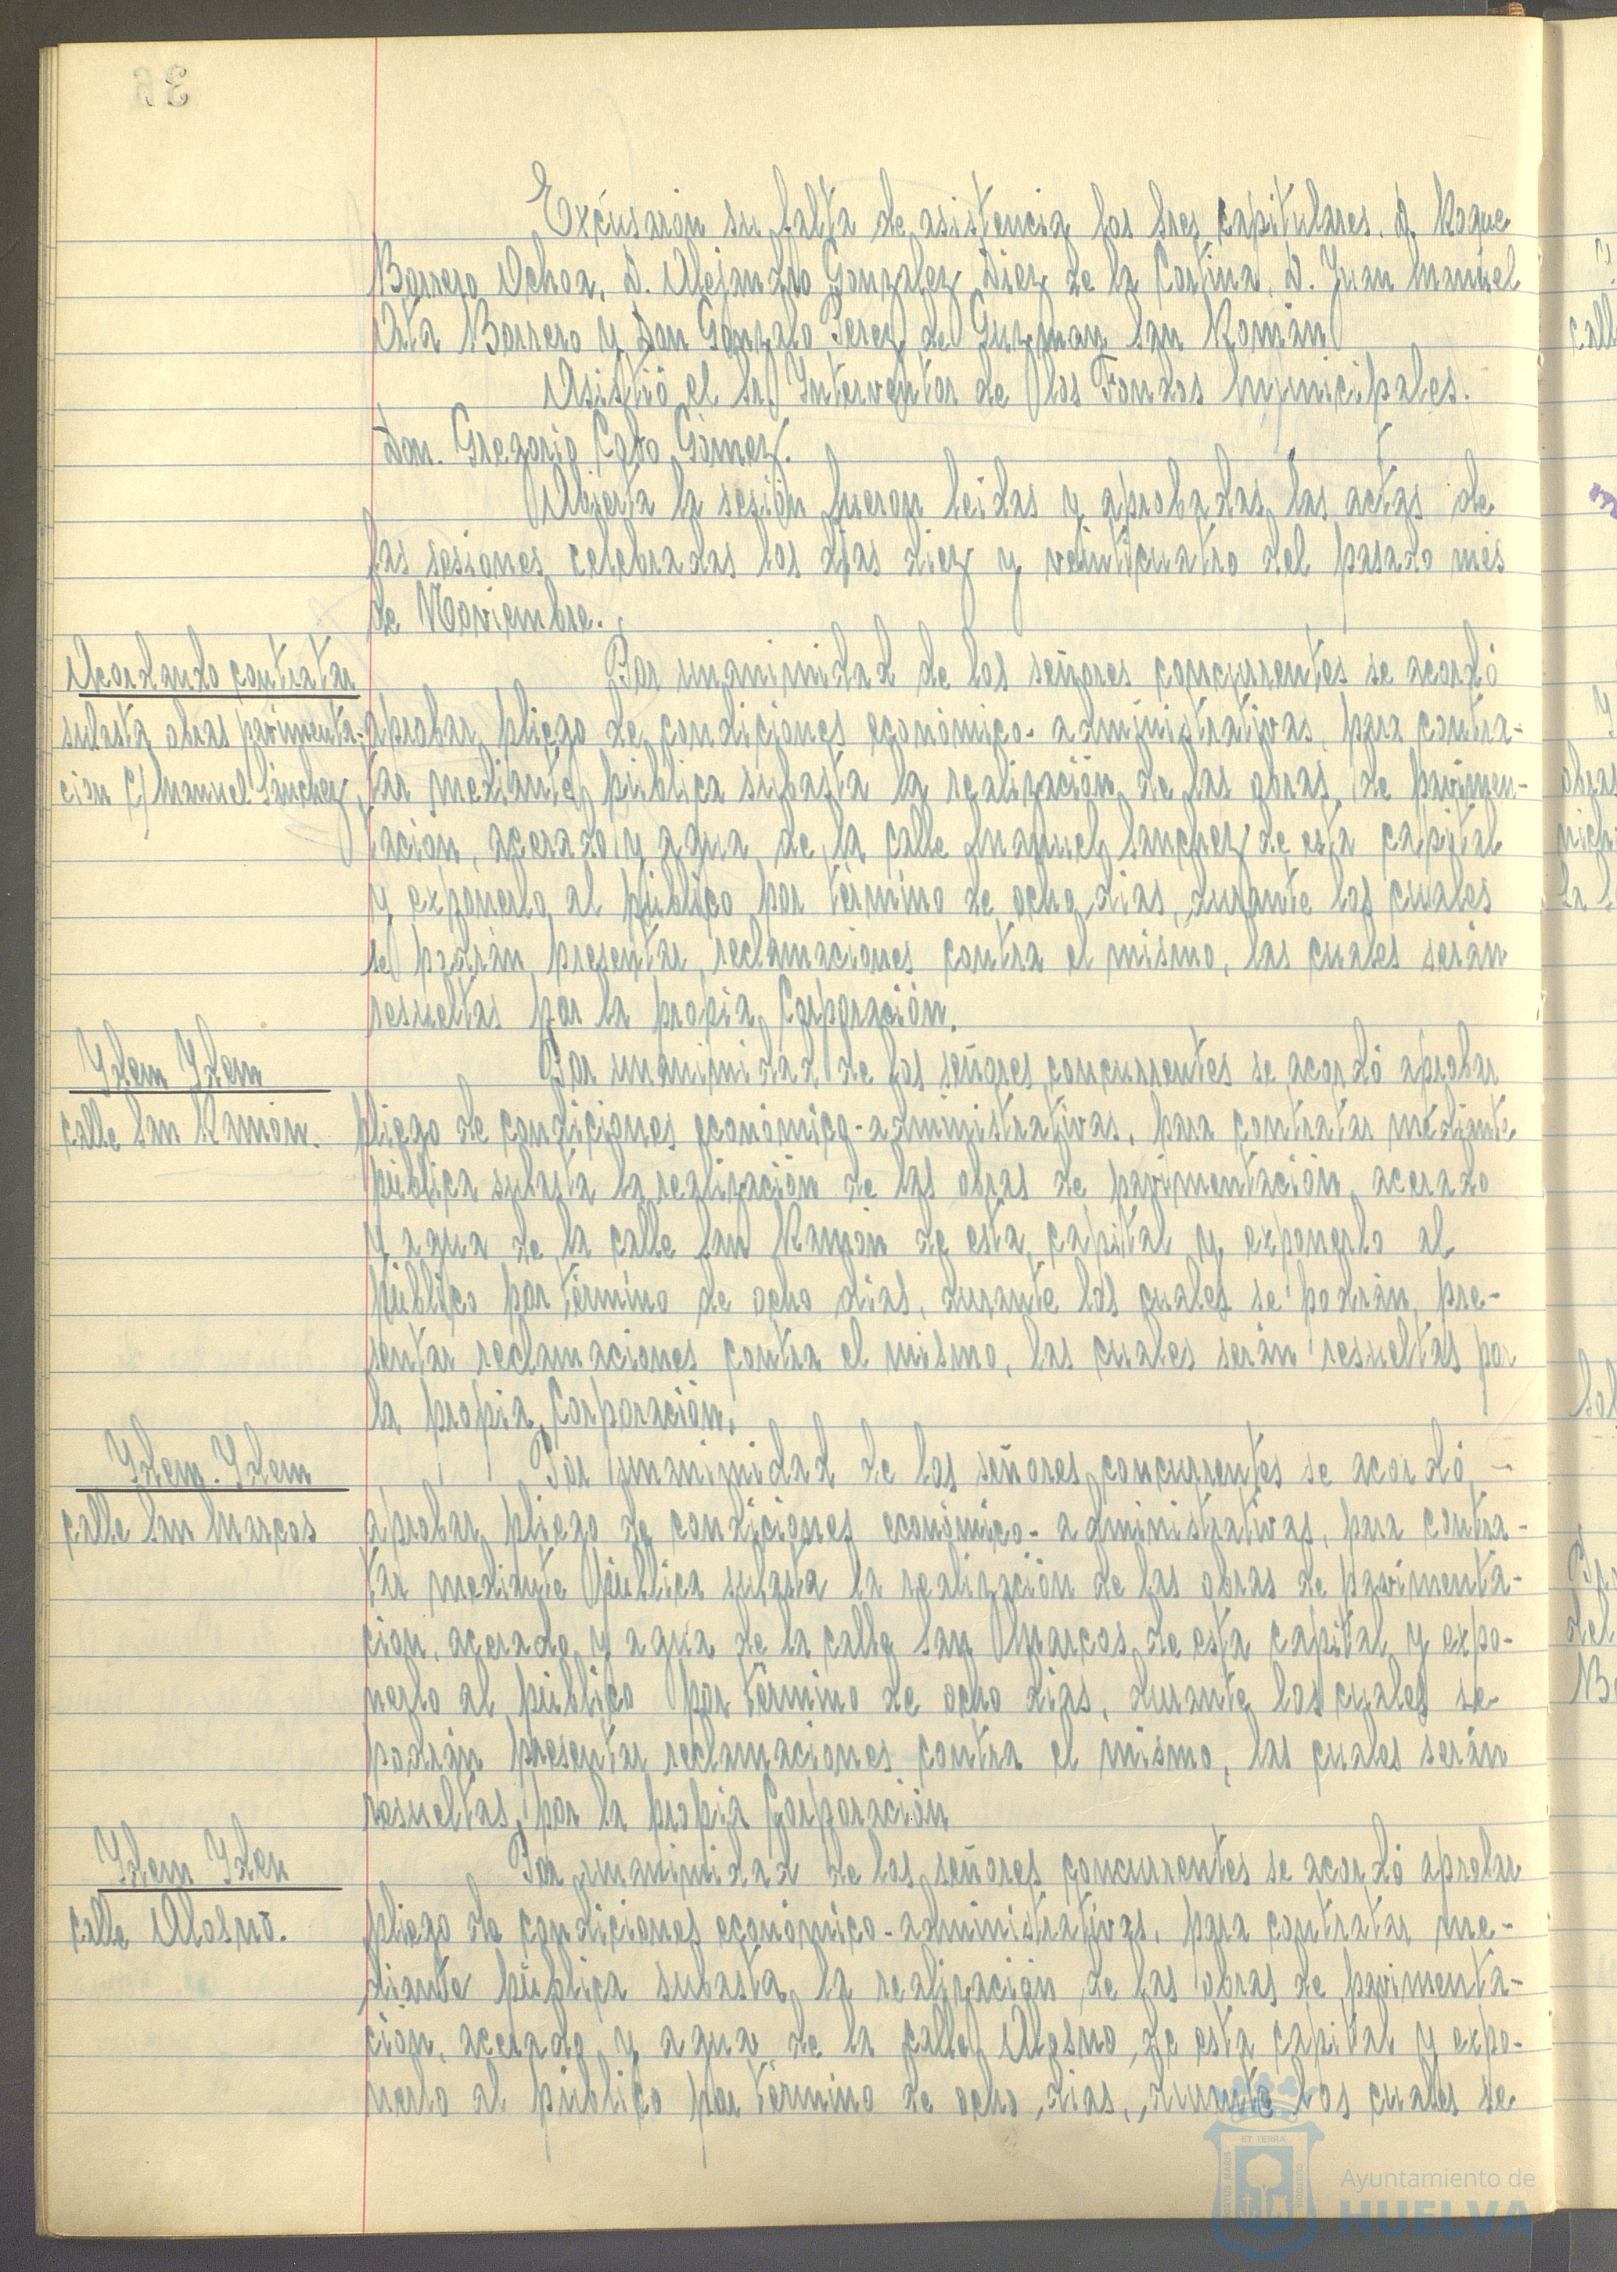 Excusaron su falta de asistencia los sres capitulares. D. Roque
Barrero Ochoa, D. Alejandro Gonzalez Diez de la Cortina, D. Juan Manuel
Orta Barrero y Don Gonzalo Perez de Guzman San Román
Asistió el Sr Interventor de los Fondos Municipales.
Don. Gregorio Calvo Gómez.
Abierta la sesión fueron leidas y aprobadas las actas de
las sesiones celebradas los dias diez y veinticuatro del pasado mes
de Noviembre.
Acordando contratar
subasta obras pavimenta-
ción C/ Manuel Sánchez
Por unanimidad de los señores concurrentes se acordó
aprobar pliego de condiciones económico-administrativas, para contra-
tar mediante pública subasta la realización de las obras de pavimen-
tación, acerado y agua de la calle Manuel Sanchez de esta capital
y exponerlo al público por término de ocho dias, durante los cuales
se podrán presentar reclamaciones contra el mismo, las cuales serán
resueltas por la propia Corporación.
Idem Idem
calle San Ramón.
Por unanimidad de los señores concurrentes se acordó aprobar
pliego de condiciones económico-administrativas, para contratar mediante
pública subasta la realización de las obras de pavimentación, acerado
y agua de la calle San Ramón de esta capital y exponerlo al
público por término de ocho dias, durante los cuales se podrán pre-
sentar reclamaciones contra el mismo, las cuales serán resueltas por
la propia Corporación.
Idem. Idem
calle San Marcos
Por unanimidad de los señores concurrentes se acordó
aprobar pliego de condiciones económico-administrativas, para contra-
tar mediante pública subasta la realización de las obras de pavimenta-
cion, acerado y agua de la calle San Marcos de esta capital y expo-
nerlo al público por término de ocho dias, durante los cuales se
podrán presentar reclamaciones contra el mismo, las cuales serán
resueltas por la propia Corporación
Idem Iden
calle Alosno.
Por unanimidad de los señores concurrentes se acordó aprobar
pliego de condiciones económico-administrativas, para contratar me-
diante pública subasta la realización de las obras de pavimenta-
ción, acerado y agua de la calle Alosno de esta capital y expo-
nerlo al público por término de ocho dias, durante los cuales se
Ayuntamiento de
HUELVA